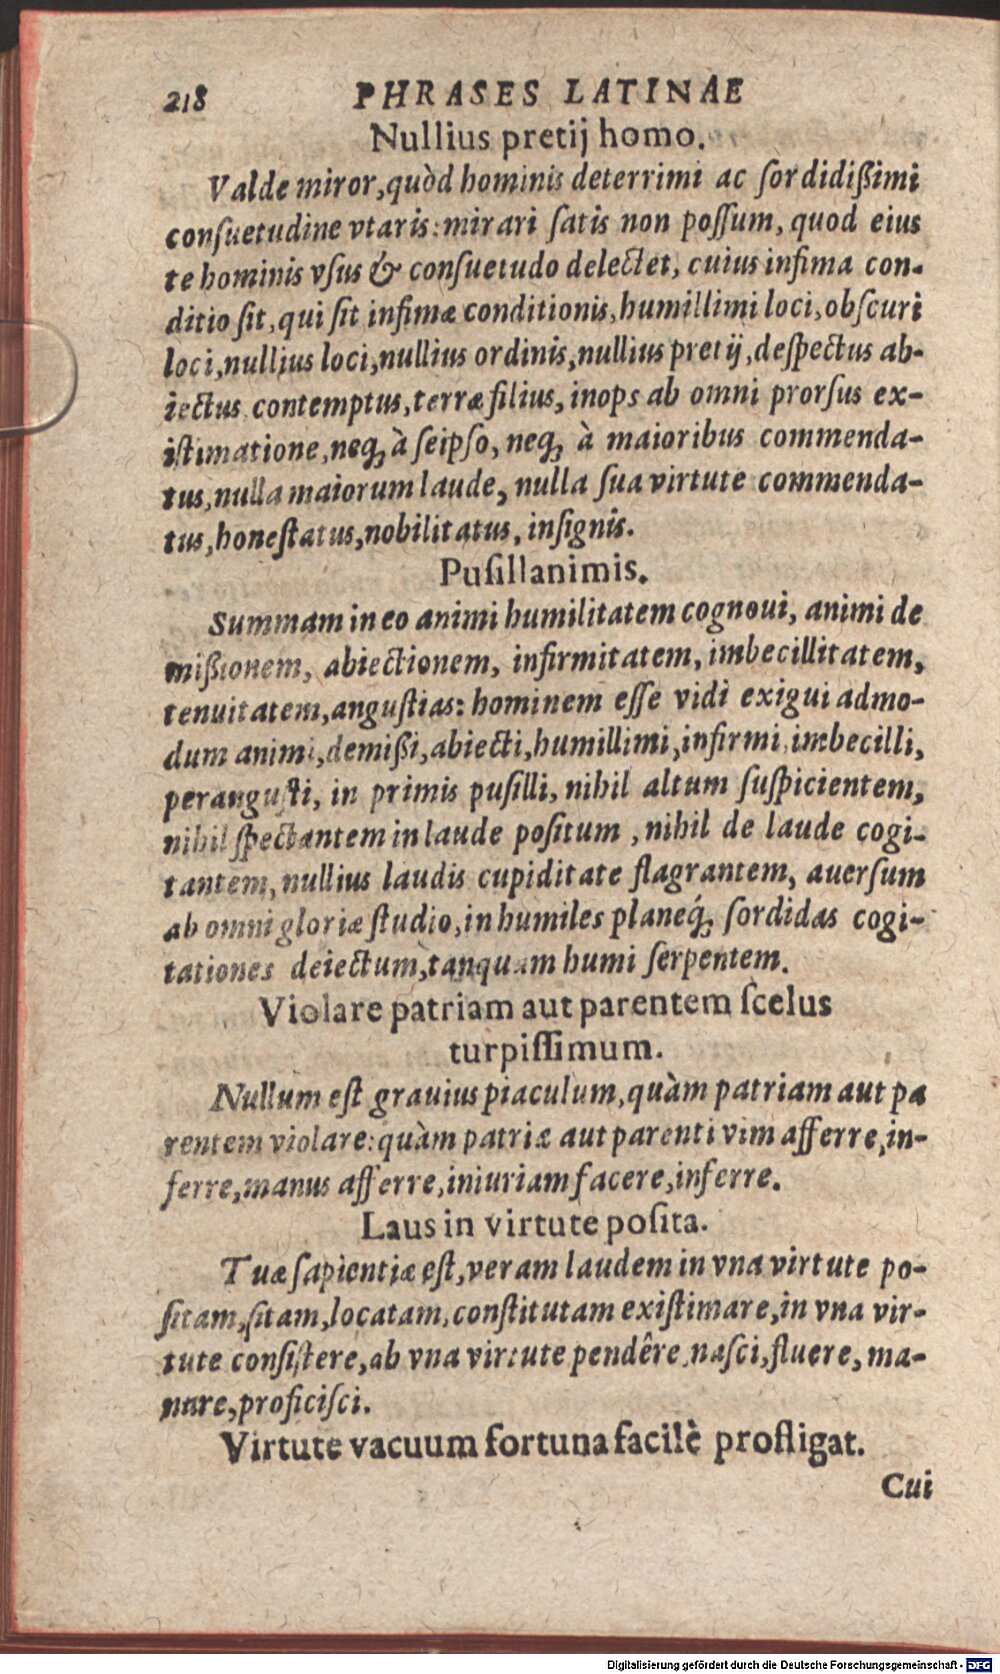 218 PHRASES LATINAE
Nullius pretij homo.
Valde miror, quòd hominis deterrimi ac ſordidißimi
conſuetudine vtaris: mirari ſatis non poſſum, quod eius
te hominis vſus & conſuetudo delectet, cuius infima con-
ditio ſit, qui ſit infimæ conditionis, humillimi loci, obſcuri
loci, nullius loci, nullius ordinis, nullius pretij, deſpectus ab-
iectus contemptus, terræ filius, inops ab omni prorſus ex-
iſtimatione, neq; à ſeipſo, neq; à maioribus commenda-
tus, nulla maiorum laude, nulla ſua virtute commenda-
tus, honeſtatus, nobilitatus, inſignis.
Puſillanimis.
Summam in eo animi humilitatem cognoui, animi de
mißionem, abiectionem, infirmitatem, imbecillitatem,
tenuitatem, anguſtias: hominem eſſe vidi exigui admo-
dum animi, demißi, abiecti, humillimi, infirmi, imbecilli,
peranguſti, in primis puſilli, nihil altum ſuſpicientem,
nihil ſpectantem in laude poſitum, nihil de laude cogi-
tantem, nullius laudis cupiditate flagrantem, auerſum
ab omni gloriæ ſtudio, in humiles planeq́; ſordidas cogi-
tationes deiectum, tanquam humi ſerpentem.
Violare patriam aut parentem ſcelus
turpiſſimum.
Nullum eſt grauius piaculum, quàm patriam aut pa
rentem violare: quàm patriæ aut parenti vim afferre, in-
ferre, manus afferre, iniuriam facere, inferre.
Laus in virtute poſita.
Tuæ ſapientiæ eſt, veram laudem in vna virtute po-
ſitam, ſitam, locatam, conſtitutam exiſtimare, in vna vir-
tute conſiſtere, ab vna virtute pendêre, naſci, fluere, ma-
nare, proficiſci.
Virtute vacuum fortuna facilè profligat.
Cui
Digitalisierung gefördert durch die Deutsche Forschungsgemeinschaft - DFG